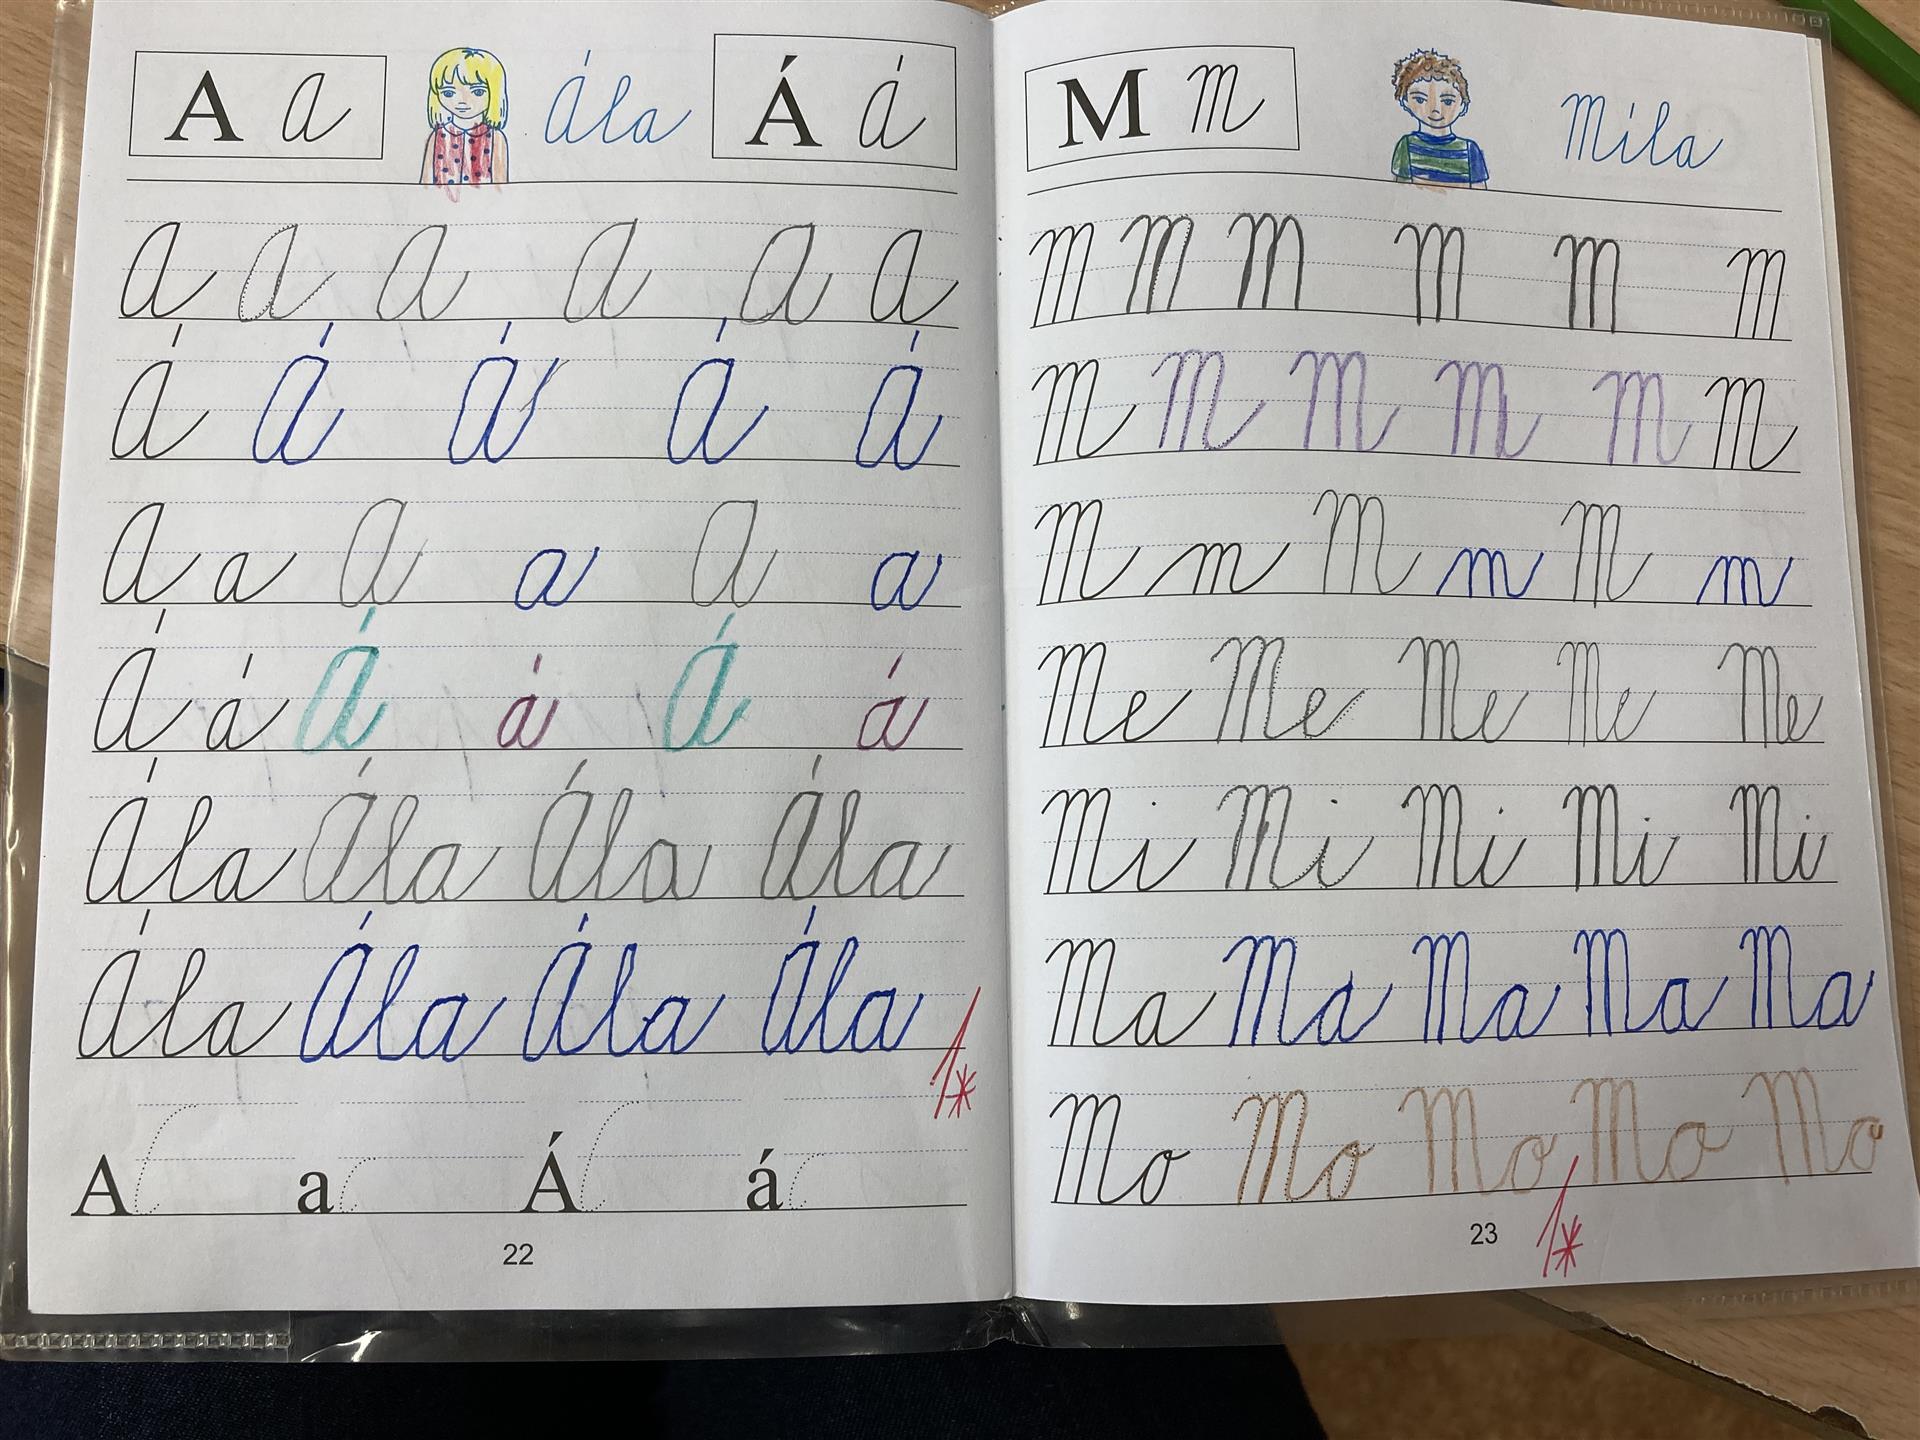 A a Ála Á á
A A A A A A
Á Á Á Á Á
A a A a A a
Á á Á á Á á
Ála Ála Ála Ála
Ála Ála Ála Ála
1*
A a Á á
22
M m Míla
M M M M M M
M M M M M M
M m M m M m
Me Me Me Me Me
Mi Mi Mi Mi Mi
Ma Ma Ma Ma Ma
Mo Mo Mo Mo Mo
23 1*